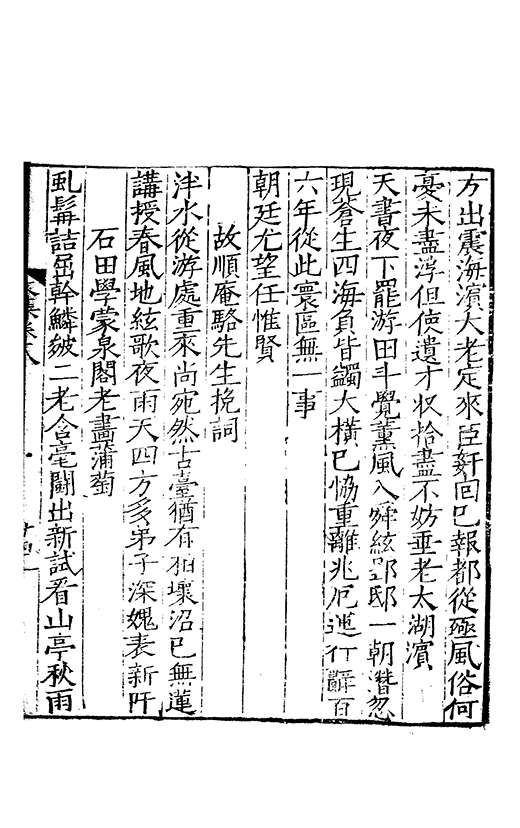 方出震海濱大老定來臣奸回已報都從殛風俗何
憂未盡淳但使遺才收拾盡不妨垂老太湖濱
天書夜下罷游田斗覺薰風入舜絃邸一朝潛忽
現蒼生四海負皆蠲大橫已恊重離兆厄運行辭百
六年從此寰區無一事
朝廷尤望任惟賢
故順庵駱先生挽詞
泮水從游處重來尚宛然古臺猶有柏壞沼已無蓮
講授春風地絃歌夜雨天四方多弟子深媿表新阡
石田學蒙泉閣老畫蒲萄
虬髯詰屈幹鱗皴二老含毫鬭出新試看山亭秋雨